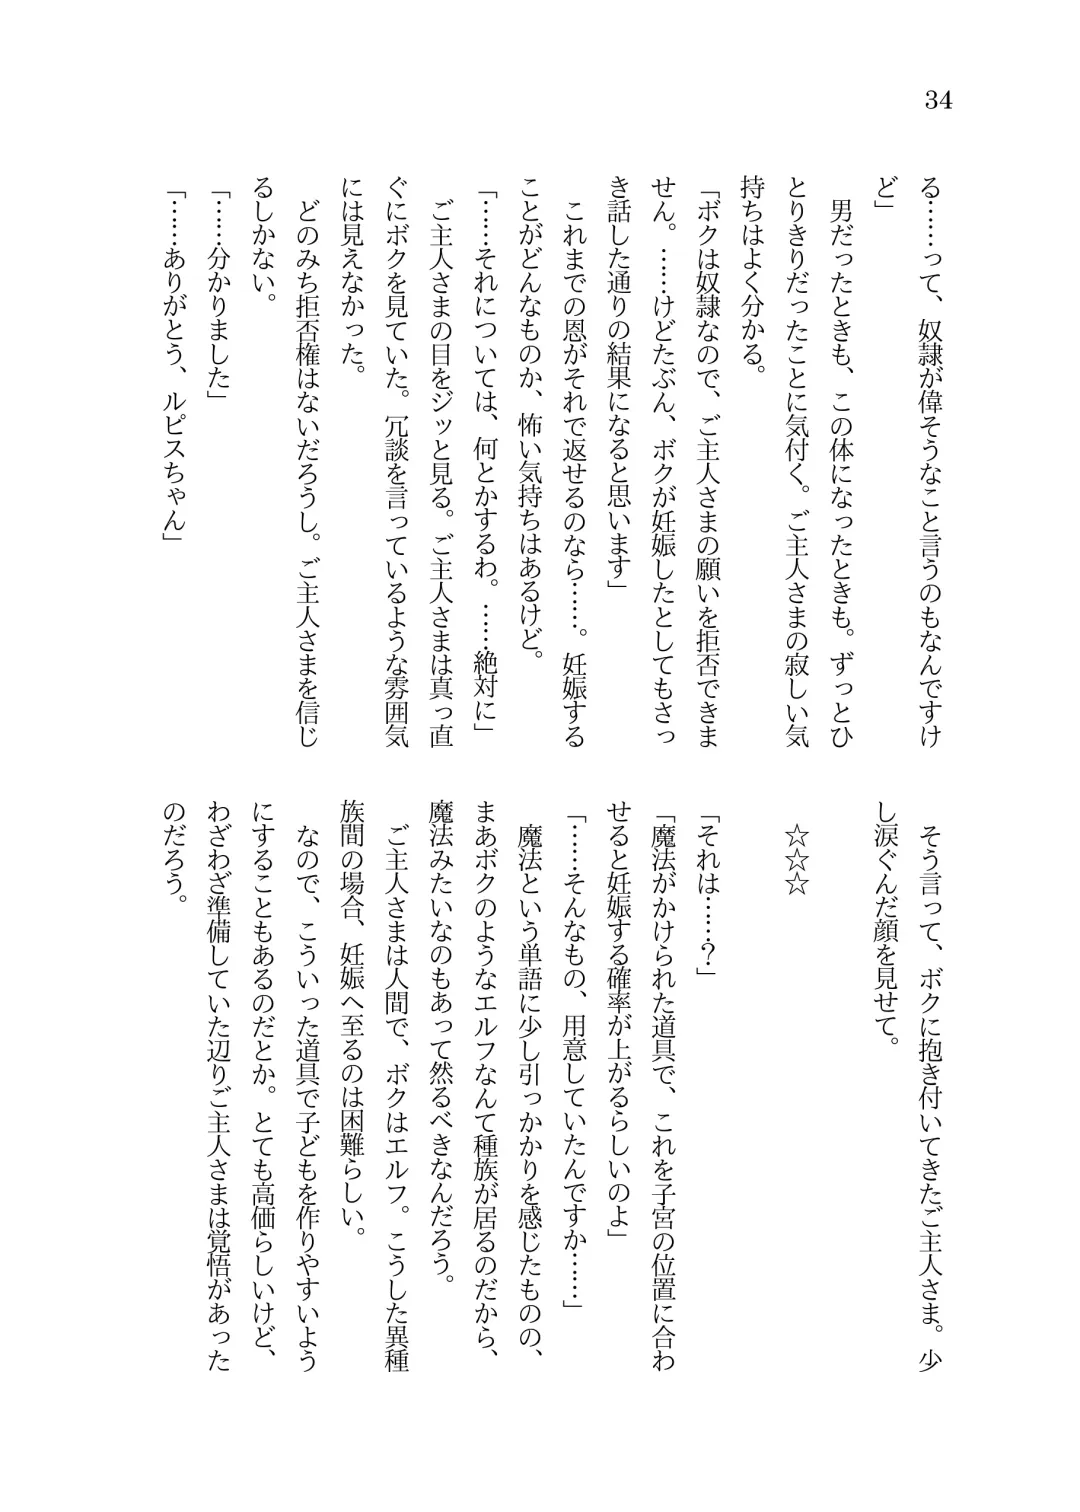 34
る……って、奴隷が偉そうなこと言うのもなんですけ
ど」
男だったときも、この体になったときも。ずっとひ
とりきりだったことに気付く。ご主人さまの寂しい気
持ちはよく分かる。
「ボクは奴隷なので、ご主人さまの願いを拒否できま
せん。……けどたぶん、ボクが妊娠したとしてもさっ
き話した通りの結果になると思います」
これまでの恩がそれで返せるのなら……。妊娠する
ことがどんなものか、怖い気持ちはあるけど。
「……それについては、何とかするわ。……絶対に」
ご主人さまの目をジッと見る。ご主人さまは真っ直
ぐにボクを見ていた。冗談を言っているような雰囲気
には見えなかった。
どのみち拒否権はないだろうし。ご主人さまを信じ
るしかない。
「……分かりました」
「……ありがとう、ルピスちゃん」
そう言って、ボクに抱き付いてきたご主人さま。少
し涙ぐんだ顔を見せて。
☆☆☆
「それは……？」
「魔法がかけられた道具で、これを子宮の位置に合わ
せると妊娠する確率が上がるらしいのよ」
「……そんなもの、用意していたんですか……」
魔法という単語に少し引っかかりを感じたものの、
まあボクのようなエルフなんて種族が居るのだから、
魔法みたいなのもあって然るべきなんだろう。
ご主人さまは人間で、ボクはエルフ。こうした異種
族間の場合、妊娠へ至るのは困難らしい。
なので、こういった道具で子どもを作りやすいよう
にすることもあるのだとか。とても高価らしいけど、
わざわざ準備していた辺りご主人さまは覚悟があった
のだろう。